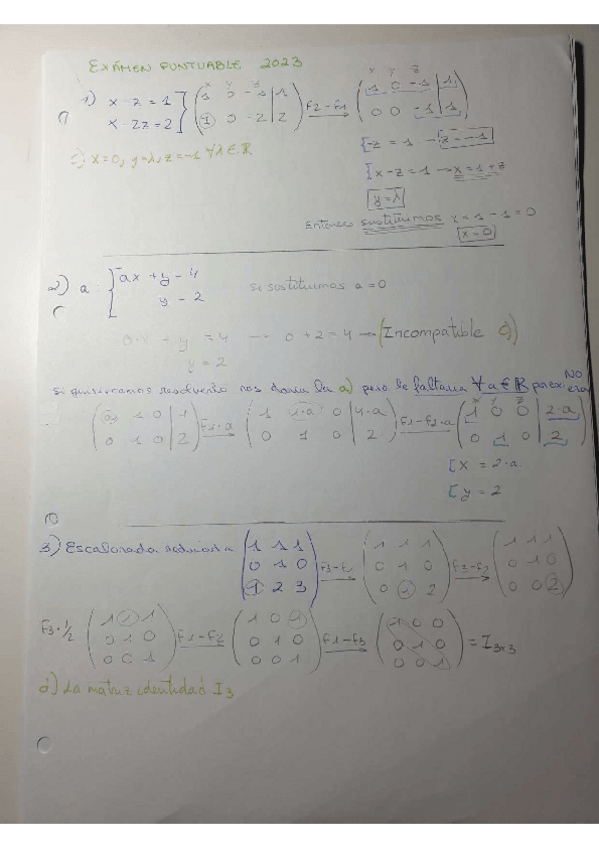 EXÁMEN PUNTUABLE 2023
1) x - z = 1
x - 2z = 2
( 1 0 -1 | 1
1 0 -2 | 2 )
F2 - F1
x y z
( 1 0 -1 | 1
0 0 -1 | 1 )
-z = 1 → z = -1
x - z = 1 → x = 1 + z
y = λ
x = 0, y = λ, z = -1 ∀λ ∈ ℝ
Entonces sustituimos x = 1 - 1 = 0
x = 0
2) a : ax + y = 4
y = 2
si sustituimos a = 0
0·x + y = 4 → 0 + 2 = 4 → (Incompatible
y = 2
resolverlo nos daría la a) pero le faltaría ∀ a ∈ ℝ para
NO
( a 1 0
0 1 0 | 2 )
0 1 0 | 2
x y z
1 0 0 | 2·a
0 1 0 | 2
x = 2·a
y = 2
3) Escalonada reducida
( 1 1 1
0 1 0
1 2 3 )
F3 - F1
( 1 1 1
0 1 0
0 1 2 )
F3 - F2
( 1 1 1
0 1 0
0 0 2 )
F3 · 1/2
( 1 1 1
0 1 0
0 0 1 )
F1 - F2
( 1 0 1
0 1 0
0 0 1 )
F1 - F3
( 1 0 0
0 1 0
0 0 1 ) = I3×3
d) La matriz identidad I3